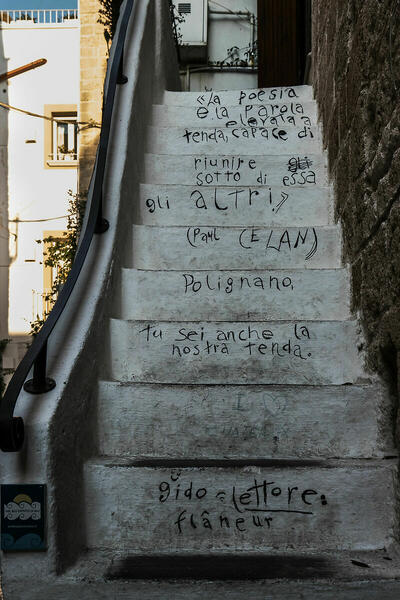 «la poesia
è la parola
elevata a
tenda, capace di
riunire
sotto di essa
gli altri»
(Paul CELAN)
Polignano,
tu sei anche la
nostra tenda.
gido e lettore:
flâneur